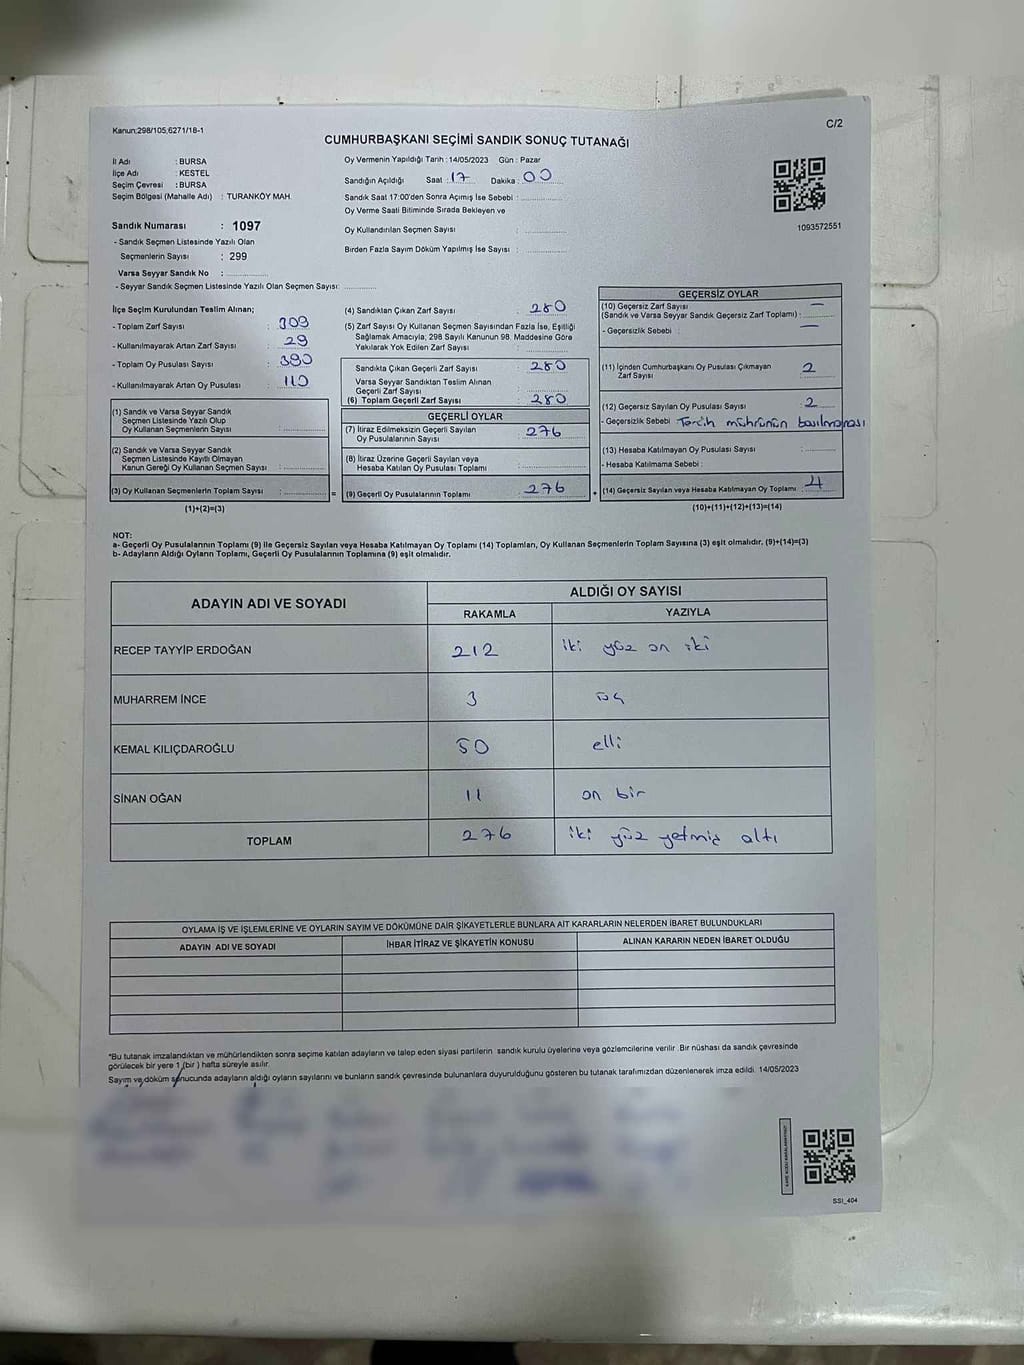 Kanun:298/105,6271/18-1
C/2
CUMHURBAŞKANI SEÇİMİ SANDIK SONUÇ TUTANAĞI
İl Adı : BURSA
İlçe Adı : KESTEL
Seçim Çevresi : BURSA
Seçim Bölgesi (Mahalle Adı) : TURANKÖY MAH.
Oy Vermenin Yapıldığı Tarih : 14/05/2023 Gün : Pazar
Sandığın Açıldığı Saat : 17 Dakika : 00
Sandık Saat 17:00'den Sonra Açımış İse Sebebi :
Oy Verme Saati Bitiminde Sırada Bekleyen ve
Oy Kullandırılan Seçmen Sayısı :
Birden Fazla Sayım Döküm Yapılmış İse Sayısı :
1093572551
Sandık Numarası : 1097
- Sandık Seçmen Listesinde Yazılı Olan
Seçmenlerin Sayısı : 299
Varsa Seyyar Sandık No :
- Seyyar Sandık Seçmen Listesinde Yazılı Olan Seçmen Sayısı:
İlçe Seçim Kurulundan Teslim Alınan;
- Toplam Zarf Sayısı : 309
- Kullanılmayarak Artan Zarf Sayısı : 29
- Toplam Oy Pusulası Sayısı : 390
- Kullanılmayarak Artan Oy Pusulası : 110
(1) Sandık ve Varsa Seyyar Sandık
Seçmen Listesinde Yazılı Olup
Oy Kullanan Seçmenlerin Sayısı :
(2) Sandık ve Varsa Seyyar Sandık
Seçmen Listesinde Kayıtlı Olmayan
Kanun Gereği Oy Kullanan Seçmen Sayısı :
(3) Oy Kullanan Seçmenlerin Toplam Sayısı : =
(1)+(2)=(3)
(4) Sandıktan Çıkan Zarf Sayısı : 280
(5) Zarf Sayısı Oy Kullanan Seçmen Sayısından Fazla İse, Eşitliği
Sağlamak Amacıyla; 298 Sayılı Kanunun 98. Maddesine Göre
Yakılarak Yok Edilen Zarf Sayısı :
Sandıkta Çıkan Geçerli Zarf Sayısı : 280
Varsa Seyyar Sandıktan Teslim Alınan
Geçerli Zarf Sayısı :
(6) Toplam Geçerli Zarf Sayısı : 280
GEÇERLİ OYLAR
(7) İtiraz Edilmeksizin Geçerli Sayılan
Oy Pusulalarının Sayısı : 276
(8) İtiraz Üzerine Geçerli Sayılan veya
Hesaba Katılan Oy Pusulası Toplamı :
(9) Geçerli Oy Pusulalarının Toplamı : 276 +
GEÇERSİZ OYLAR
(10) Geçersiz Zarf Sayısı —
(Sandık ve Varsa Seyyar Sandık Geçersiz Zarf Toplamı) :
- Geçersizlik Sebebi : —
(11) İçinden Cumhurbaşkanı Oy Pusulası Çıkmayan
Zarf Sayısı : 2
(12) Geçersiz Sayılan Oy Pusulası Sayısı : 2
- Geçersizlik Sebebi : Tercih mührünün basılmaması
(13) Hesaba Katılmayan Oy Pusulası Sayısı :
- Hesaba Katılmama Sebebi :
(14) Geçersiz Sayılan veya Hesaba Katılmayan Oy Toplamı : 4
(10)+(11)+(12)+(13)=(14)
NOT:
a- Geçerli Oy Pusulalarının Toplamı (9) ile Geçersiz Sayılan veya Hesaba Katılmayan Oy Toplamı (14) Toplamları, Oy Kullanan Seçmenlerin Toplam Sayısına (3) eşit olmalıdır. (9)+(14)=(3)
b- Adayların Aldığı Oyların Toplamı, Geçerli Oy Pusulalarının Toplamına (9) eşit olmalıdır.
ADAYIN ADI VE SOYADI
ALDIĞI OY SAYISI
RAKAMLA YAZIYLA
RECEP TAYYİP ERDOĞAN 212 iki yüz on iki
MUHARREM İNCE 3 üç
KEMAL KILIÇDAROĞLU 50 elli
SİNAN OĞAN 11 on bir
TOPLAM 276 iki yüz yetmiş altı
OYLAMA İŞ VE İŞLEMLERİNE VE OYLARIN SAYIM VE DÖKÜMÜNE DAİR ŞİKAYETLERLE BUNLARA AİT KARARLARIN NELERDEN İBARET BULUNDUKLARI
ADAYIN ADI VE SOYADI İHBAR İTİRAZ VE ŞİKAYETİN KONUSU ALINAN KARARIN NEDEN İBARET OLDUĞU
*Bu tutanak imzalandıktan ve mühürlendikten sonra seçime katılan adayların ve talep eden siyasi partilerin sandık kurulu üyelerine veya gözlemcilerine verilir. Bir nüshası da sandık çevresinde
görülecek bir yere 1 (bir) hafta süreyle asılır.
Sayım ve döküm sonucunda adayların aldığı oyların sayılarını ve bunların sandık çevresinde bulunanlara duyurulduğunu gösteren bu tutanak tarafımızdan düzenlenerek imza edildi. 14/05/2023
SSI_404